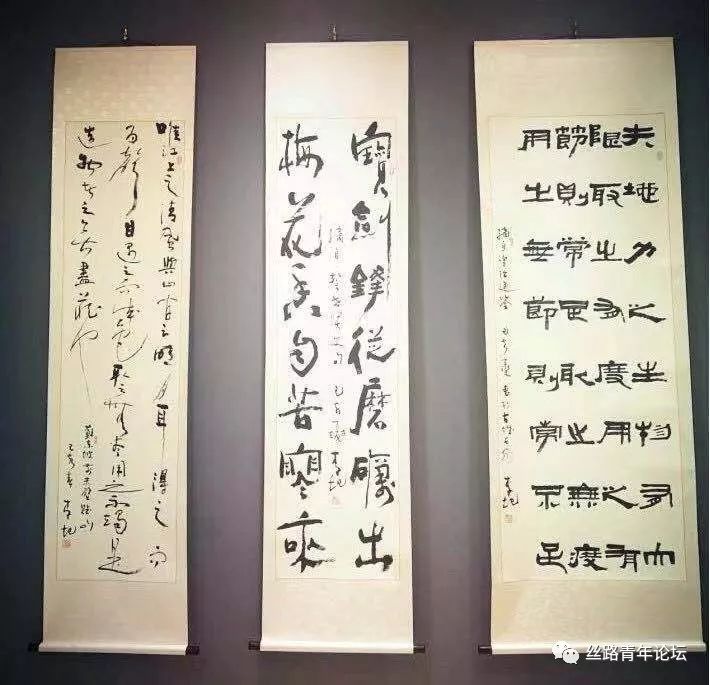 夫地力之生物有大
限取之有度用之有
節則常足取之無度
用之無節則常不足
摘自資治通鑒
寶劍鋒從磨礪出
梅花香自苦寒來
唯江上之清風與山間之明月耳得之而
為聲目遇之而成色取之無禁用之不竭是
造物者之無盡藏也
丝路青年论坛